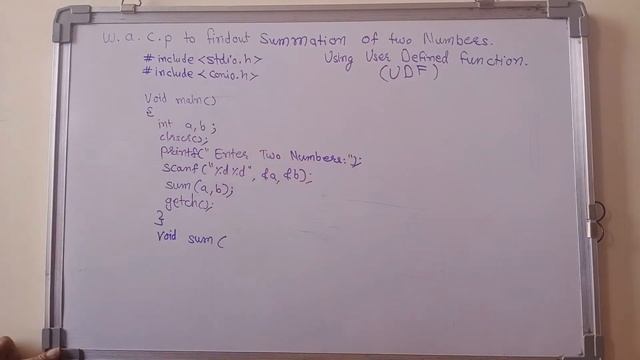 W. a. c. p to findout Summation of two Numbers.
Using User Defined function.
(UDF)
# include <stdio.h>
# include <conio.h>
Void main()
{
int a,b;
clrscr();
printf(" Enter Two Numbers:");
scanf("%d%d", &a, &b);
sum(a,b);
getch();
}
Void sum(